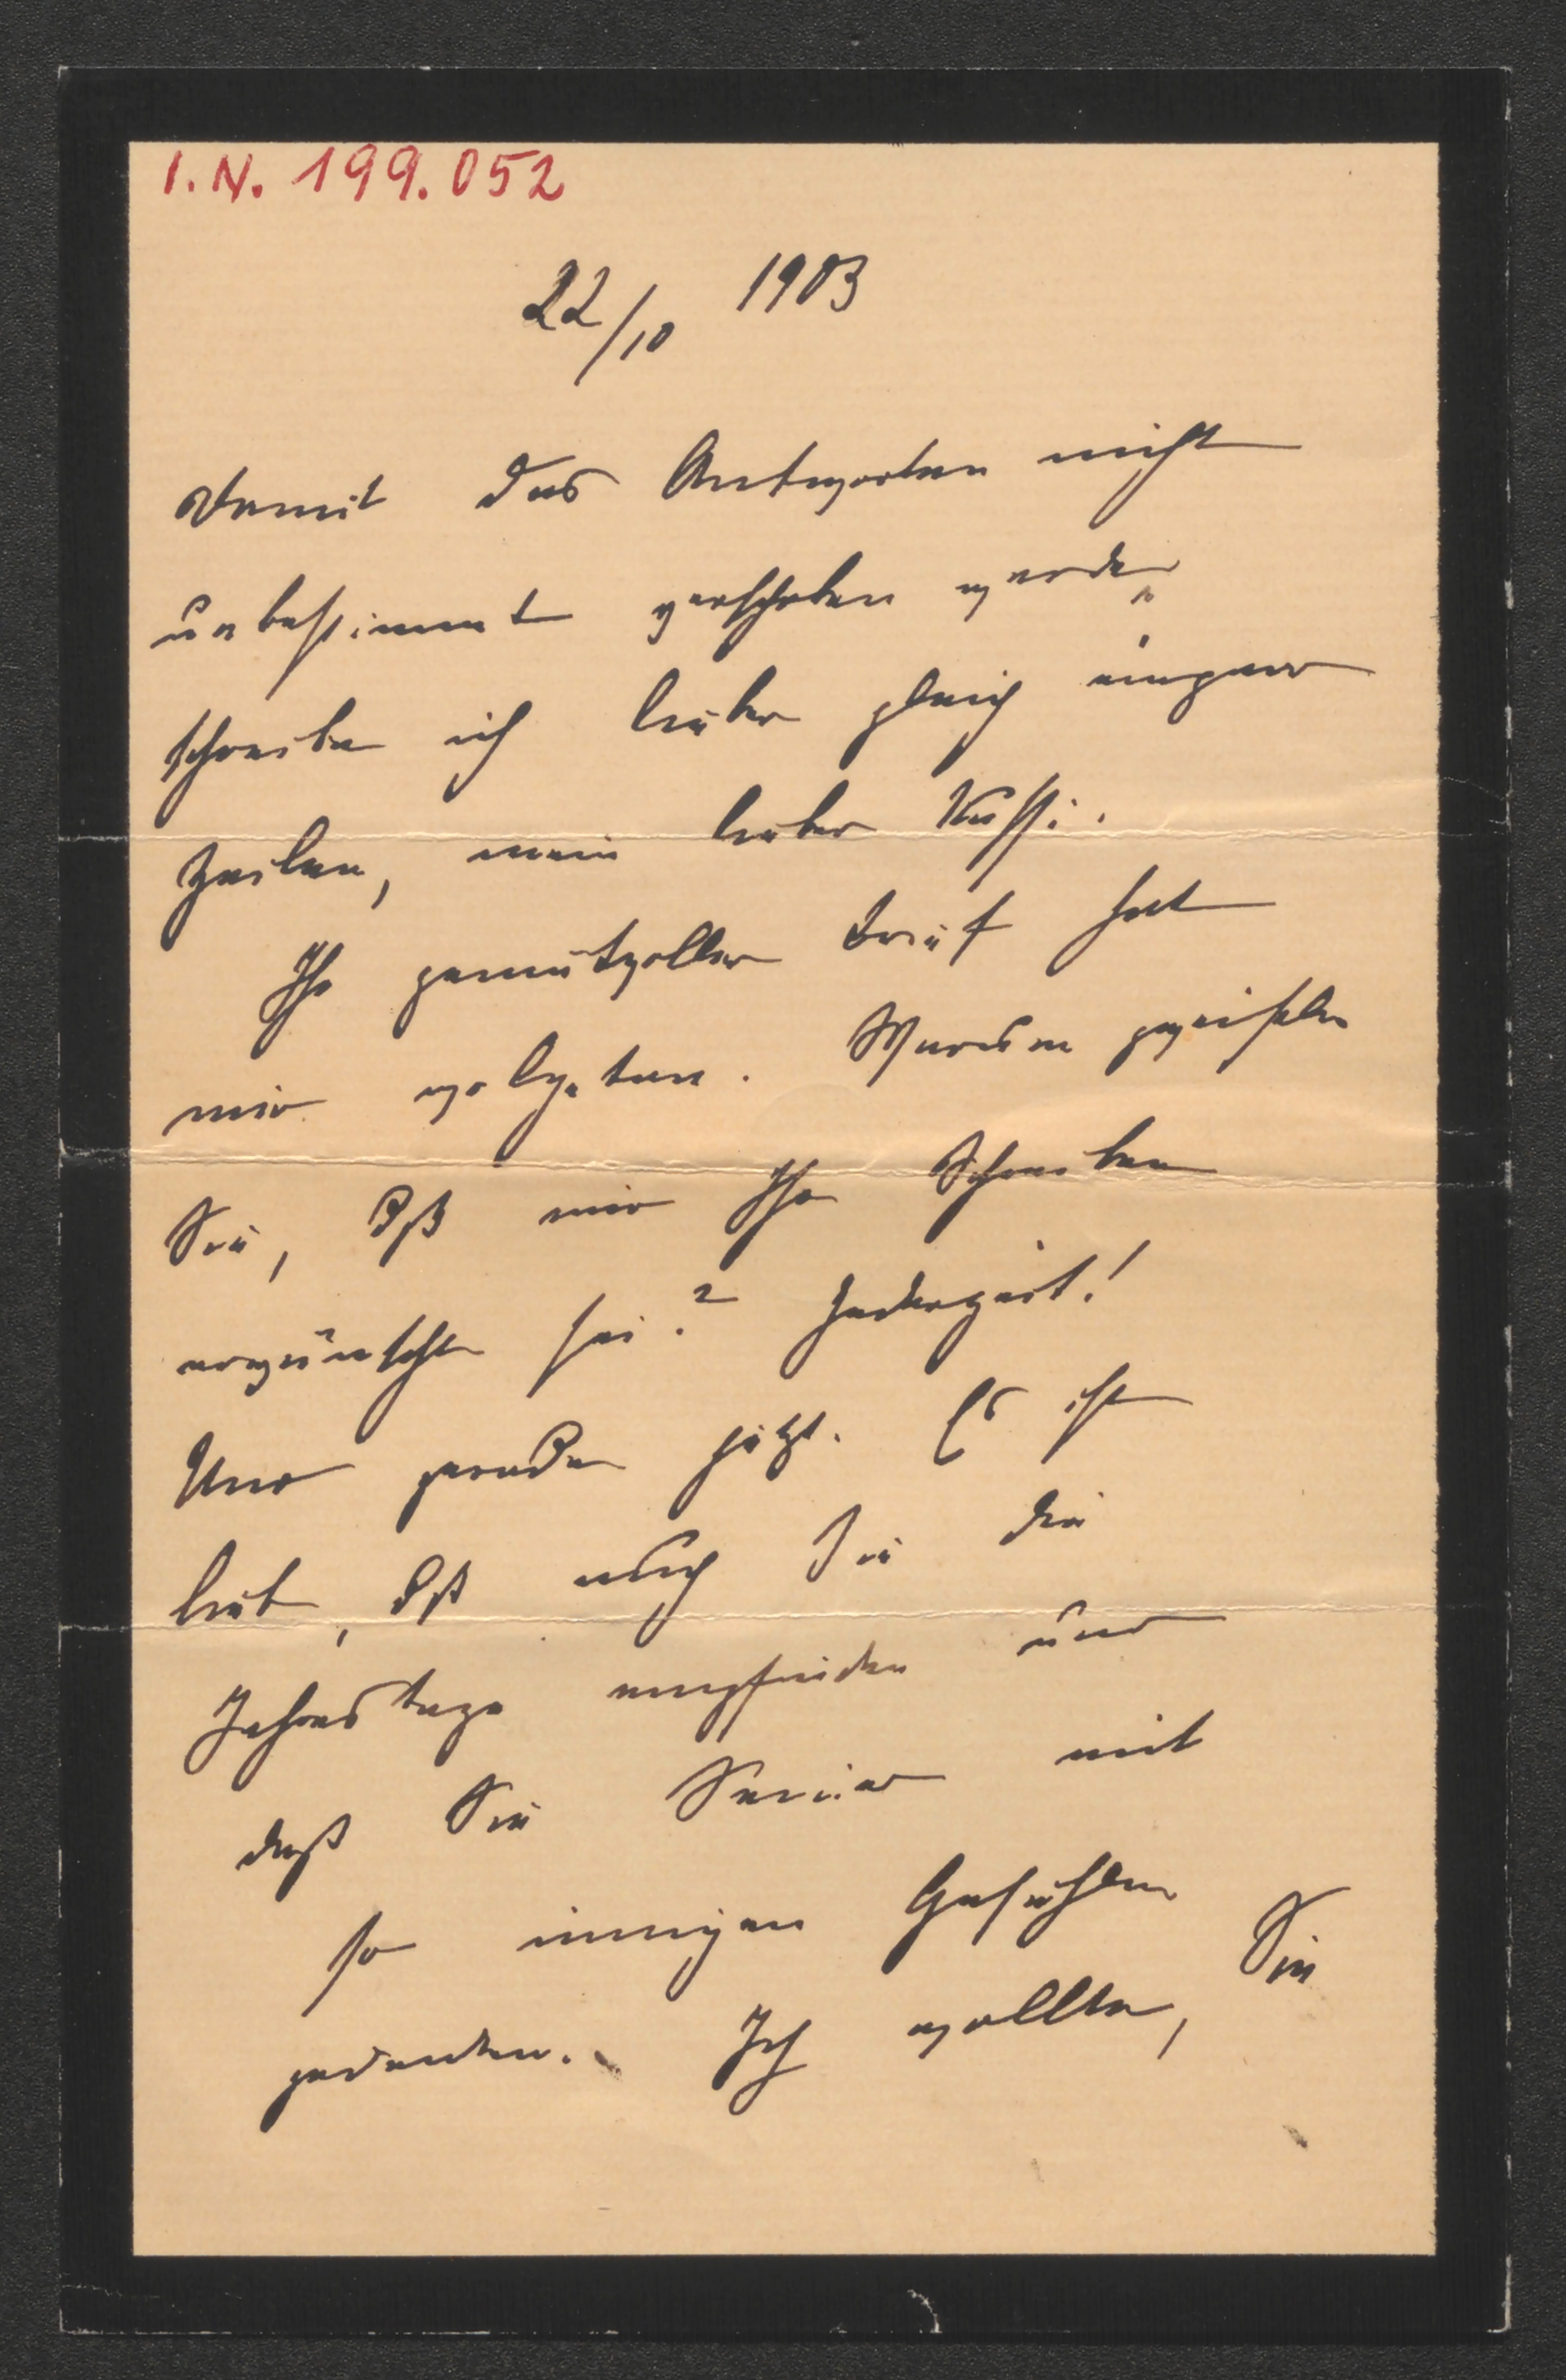 I.N. 199.052
22/10 1903
Damit das Antworten nicht
unbestimmt verschoben werde,
schreibe ich lieber gleich einpaar
Zeilen, mein lieber Kuffi.
Ihr gemütvoller Brief hat
mir wolgetan. Warum zweifeln
Sie, dß mir Ihr Schreiben
erwünscht sei? Jederzeit!
Und gerade jetzt. Es ist
lieb, dß auch Sie die
Jahrestage empfinden und
daß Sie Seiner mit
so innigen Gefühlen
gedenken. Ich wollte, Sie